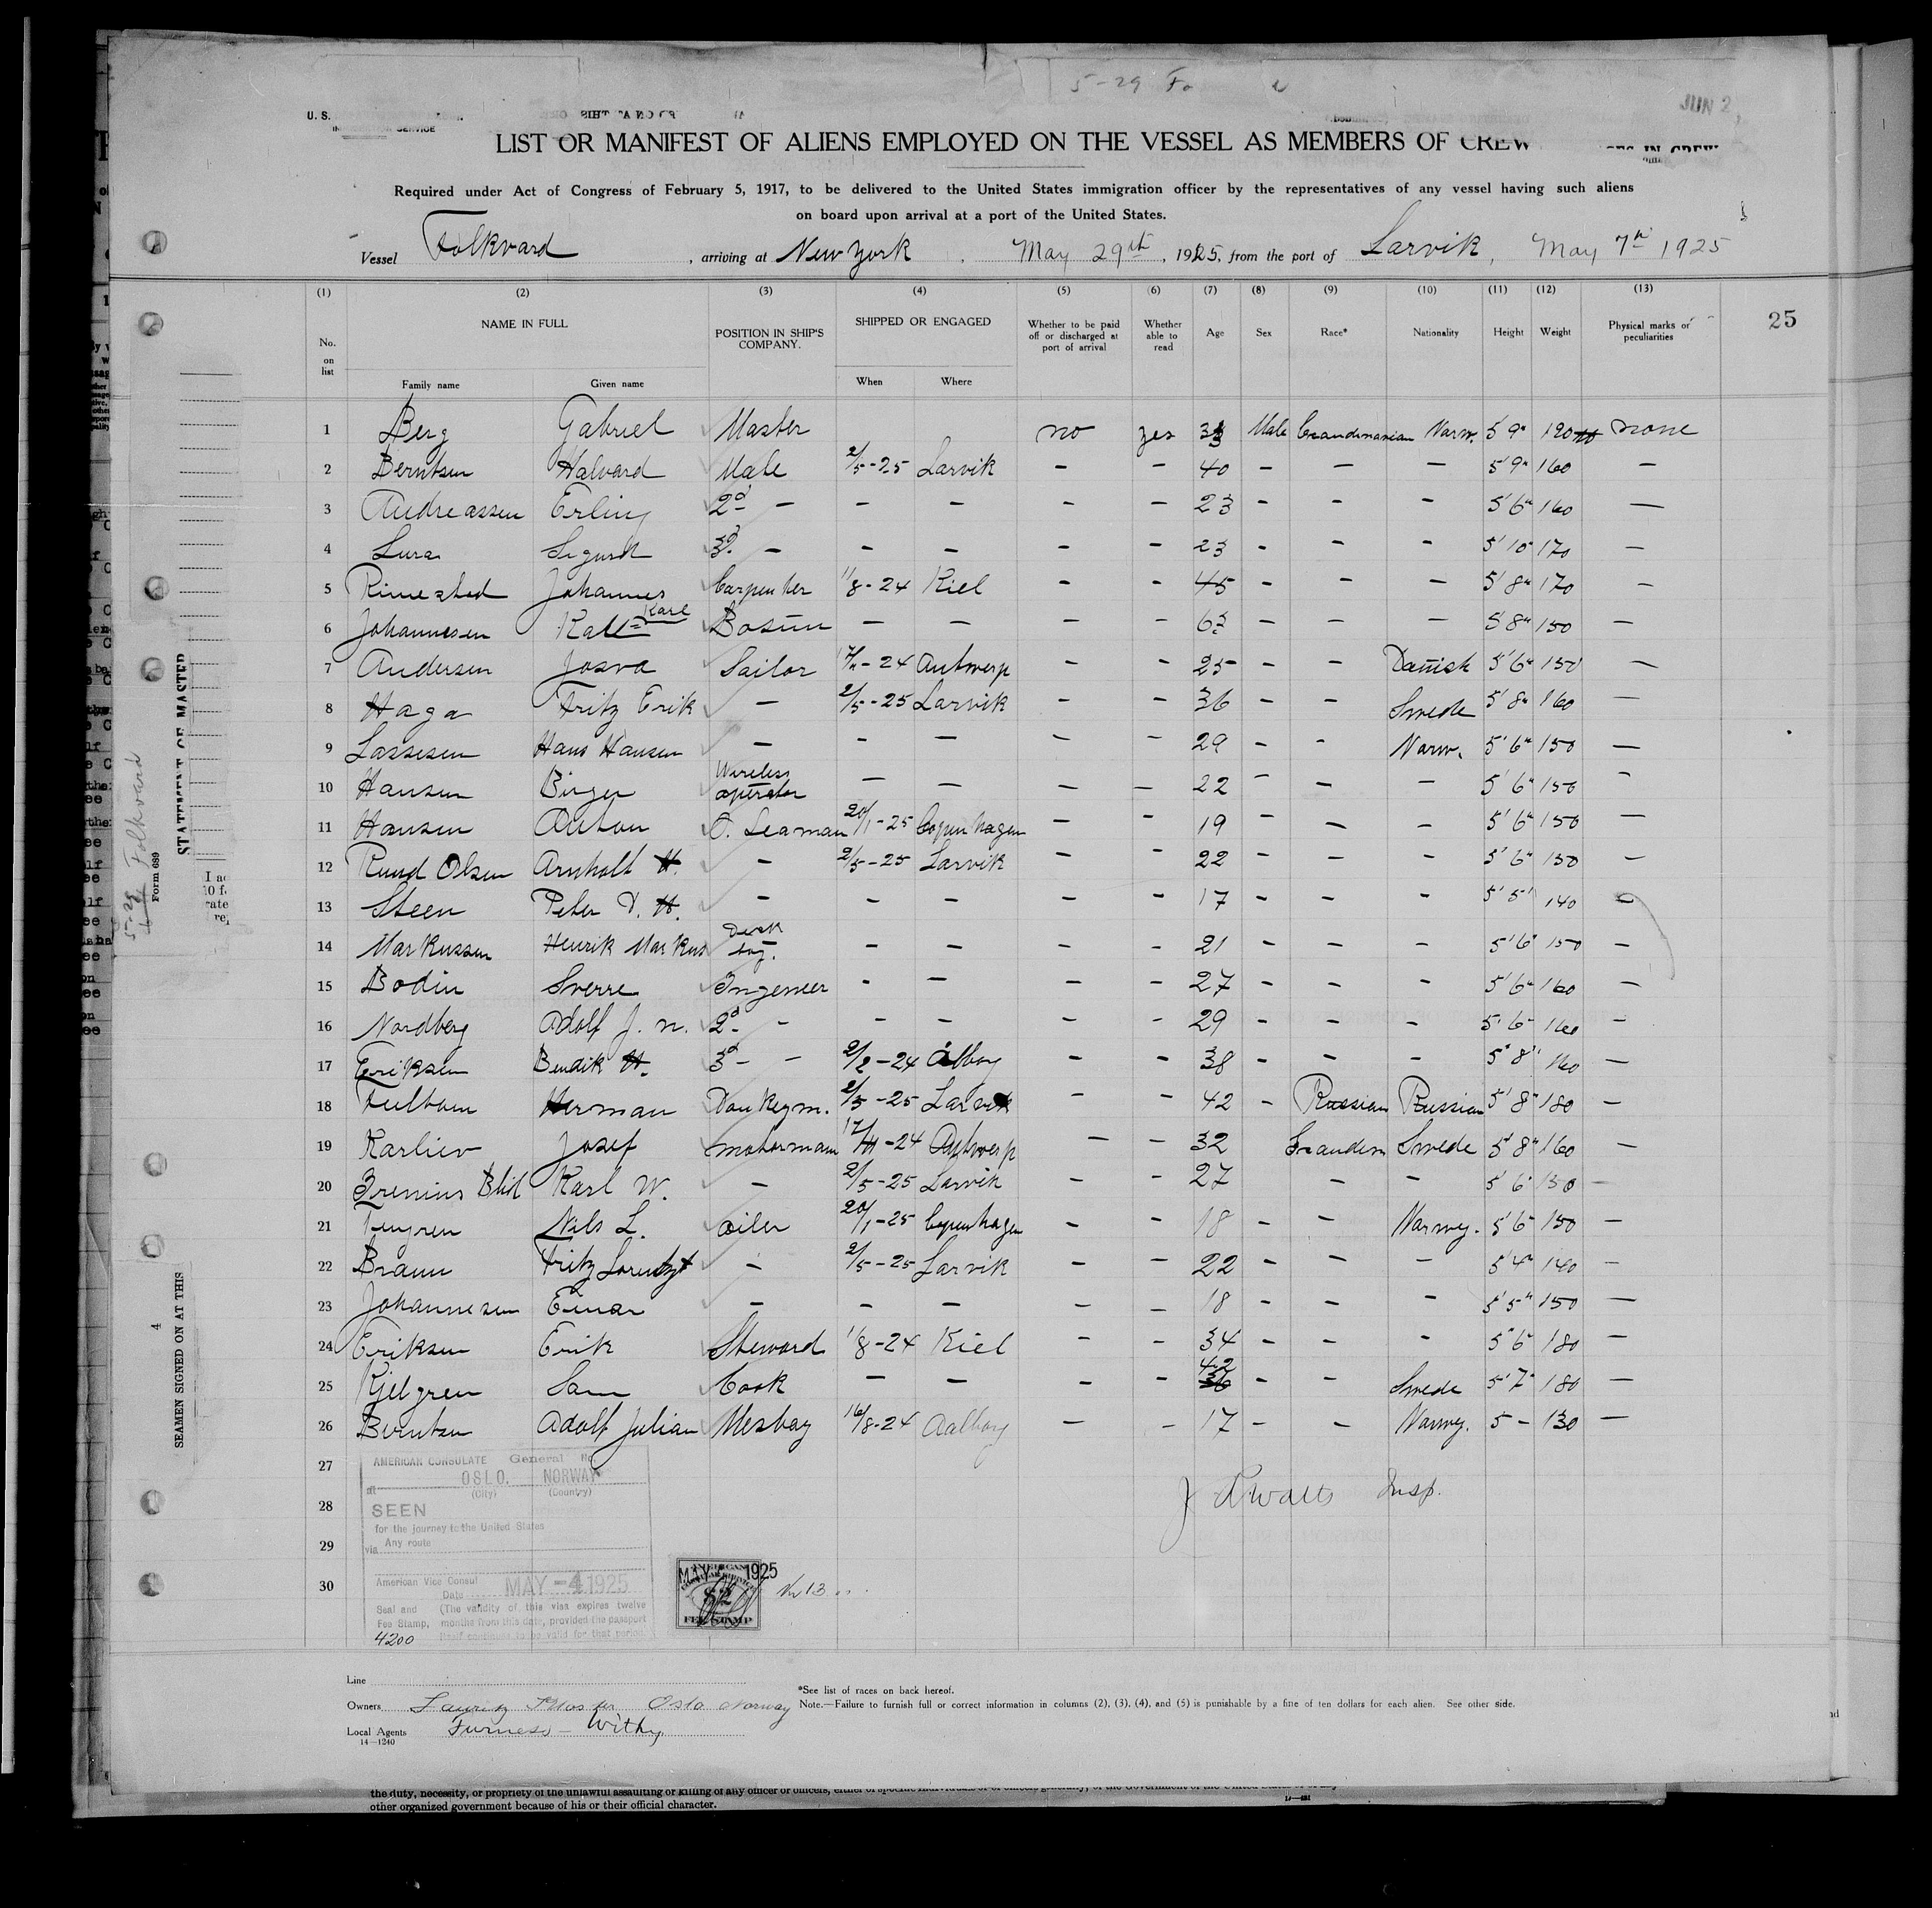 5-29 Fo
JUN 2,
U. S.
SERVICE
LIST OR MANIFEST OF ALIENS EMPLOYED ON THE VESSEL AS MEMBERS OF CREW
Required under Act of Congress of February 5, 1917, to be delivered to the United States immigration officer by the representatives of any vessel having such aliens
on board upon arrival at a port of the United States.
Vessel Folkvard, arriving at New York. May 29th, 1925, from the port of Larvik, May 7th 1925
(1) (2) (3) (4) (5) (6) (7) (8) (9) (10) (11) (12) (13)
No. on list NAME IN FULL POSITION IN SHIP'S COMPANY. SHIPPED OR ENGAGED Whether to be paid off or discharged at port of arrival Whether able to read Age Sex Race* Nationality Height Weight Physical marks or peculiarities 25
Family name Given name When Where
1 Berg Gabriel Master no yes 33 Male Scandinavian Norw. 5'9" 190 none
2 Berntsen Halvard Mate 2/5-25 Larvik - - 40 - - - 5'9" 160 -
3 Andreassen Erling 2d - - - - - 23 - - - 5'6" 160 -
4 Lura Sigurd 3d - - - - - 23 - - - 5'10" 170 -
5 Rimestad Johannes Carpenter 1/8-24 Kiel - - 45 - - - 5'8" 170 -
6 Johannesen Karl Bosun - - - - 63 - - - 5'8" 150 -
7 Andersen Josva Sailor 17/11-24 Antwerp - - 25 - - Danish 5'6" 150 -
8 Haga Fritz Erik - 2/5-25 Larvik - - 36 - - Swede 5'8" 160 -
9 Lassesen Hans Hansen - - - - - 29 - - Norw. 5'6" 150 -
10 Hansen Birger Wireless operator - - - - 22 - - - 5'6" 150 -
11 Hansen Anton O. Seaman 20/1-25 Copenhagen - - 19 - - - 5'6" 150 -
12 Ruud Olsen Arnholt H. - 2/5-25 Larvik - - 22 - - - 5'6" 150 -
13 Steen Peter D. H. - - - - - 17 - - - 5'5" 140 -
14 Markussen Henrik Markus Deck boy. - - - - 21 - - - 5'6" 150 -
15 Bodin Sverre Ingenieer - - - - 27 - - - 5'6" 160 -
16 Nordberg Adolf J. N. 2d - - - - - 29 - - - 5'6" 160 -
17 Eriksen Bendik H. 3d - 2/2-24 Ålborg - - 38 - - - 5'8" 160 -
18 Herman Donkeym. 2/5-25 Larvik - - 42 - Russian Russian 5'8" 180 -
19 Josef motorman 17/11-24 Antwerp - - 32 Scandin Swede 5'8" 160 -
20 Karl W. - 2/5-25 Larvik - - 27 - - 5'6" 150 -
21 Nils L. oiler 20/1-25 Copenhagen - - 18 - - Norweg. 5'6" 150 -
22 Braun Fritz Lorentz - 2/5-25 Larvik - - 22 - - - 5'4" 140 -
23 Johannesen Einar - - - - - 18 - - - 5'5" 150 -
24 Eriksen Erik Steward 1/8-24 Kiel - - 34 - - - 5'6" 180 -
25 Kjelgren Sam Cook - - - - 42 - - Swede 5'7" 180 -
26 Berntsen Adolf Julian Mesboy 16/8-24 Aalborg - - 17 - - Norweg. 5 - 130 -
27
28
29
30
Insp.
AMERICAN CONSULATE General No
at OSLO. NORWAY
(City) (Country)
SEEN
for the journey to the United States
via Any route
American Vice Consul
Date MAY -4 1925
Seal and Fee Stamp, (The validity of this visa expires twelve months from this date, provided the passport itself continues to be valid for that period.
4200
MAY 1925
AMERICAN
$2
FEE STAMP
No 13
Line
*See list of races on back hereof.
Owners Lauritz Kloster Oslo Norway
Note.—Failure to furnish full or correct information in columns (2), (3), (4), and (5) is punishable by a fine of ten dollars for each alien. See other side.
Local Agents Furness - Withy
14—1240
the duty, necessity, or propriety of the unlawful assaulting or killing of any officer or officers,
other organized government because of his or their official character.
5-29 Folkvard
Form 689
STATEMENT OF MASTER
4
SEAMEN SIGNED ON AT THIS